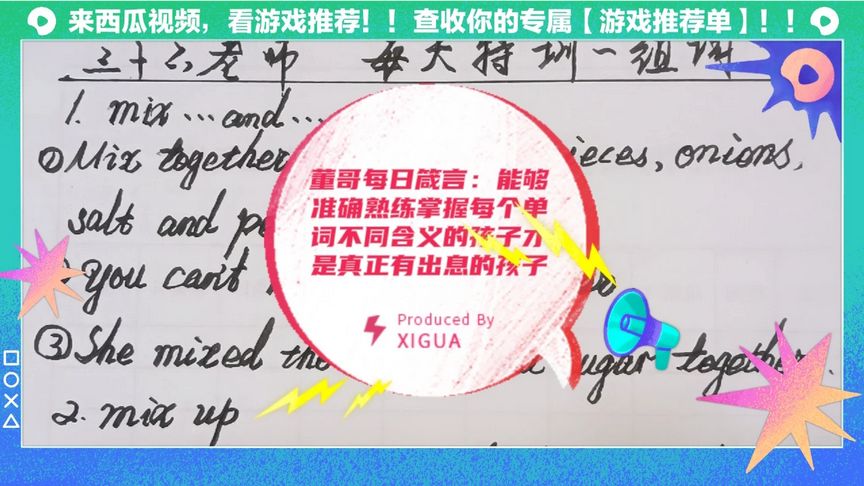 来西瓜视频，看游戏推荐！！查收你的专属【游戏推荐单】！！
老师 每天特训一组词
1. mix ... and ...
①Mix together ieces, onions,
salt and
you can't
③She mixed the ugar together.
2. mix up
董哥每日箴言：能够
准确熟练掌握每个单
词不同含义的孩子才
是真正有出息的孩子
Produced By
XIGUA